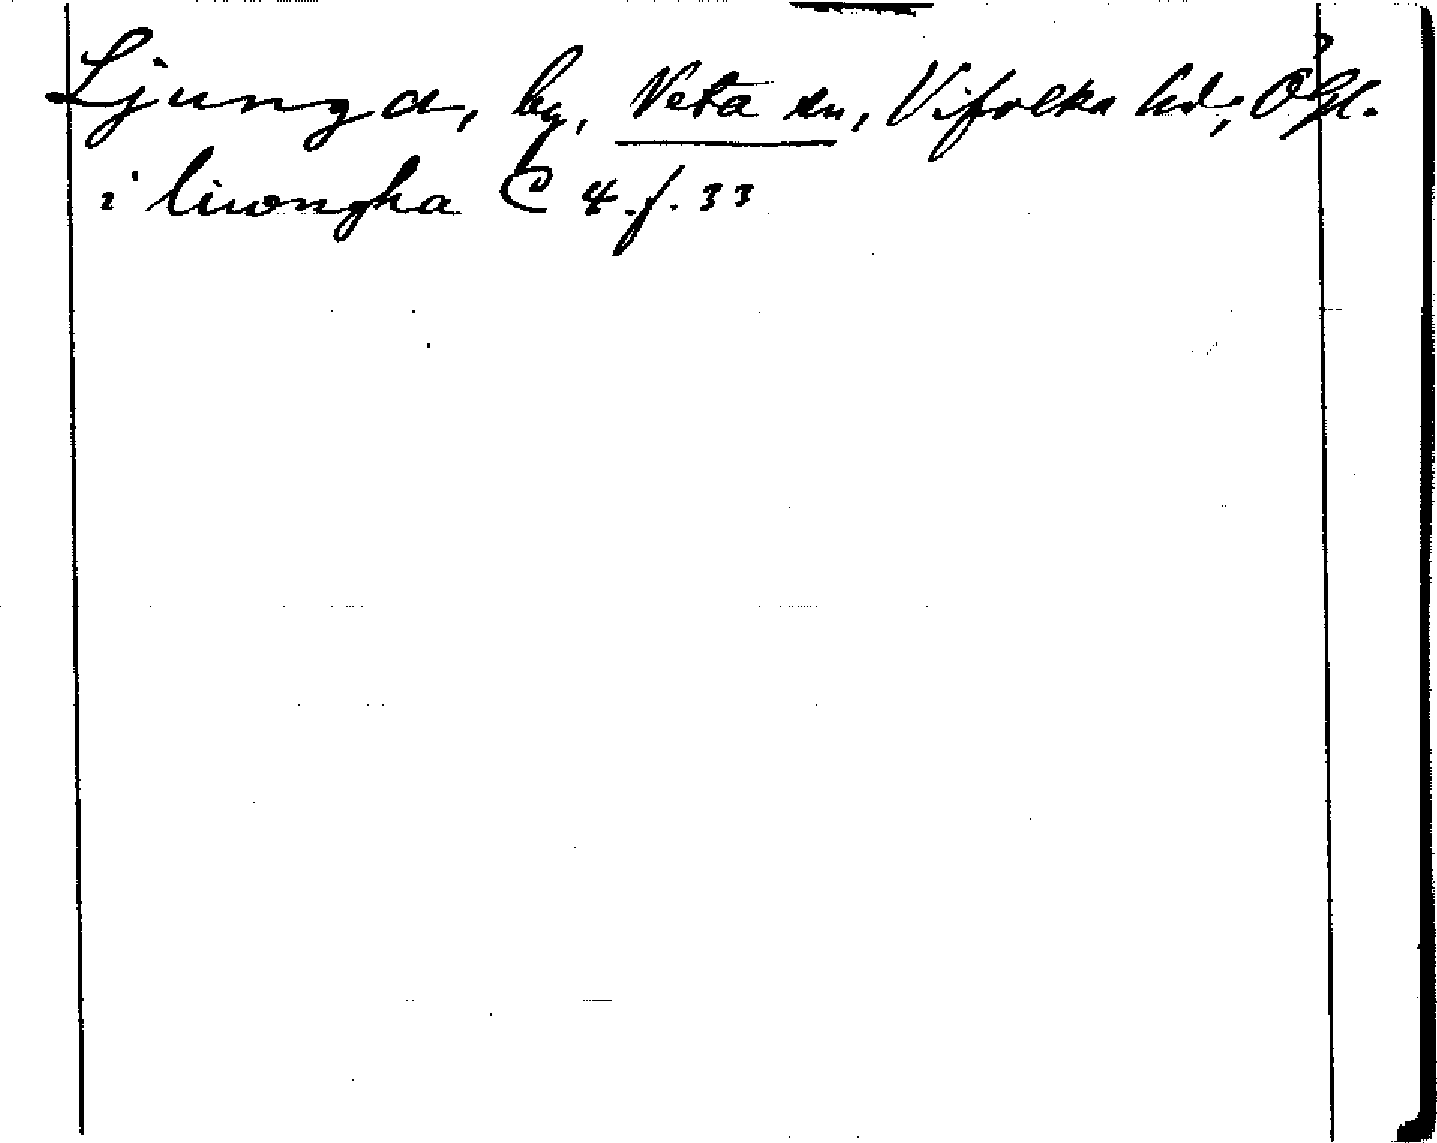 Ljunga, by, Veta sn, Vifolka hd, Ögl.
i liwongha C 4. f. 33